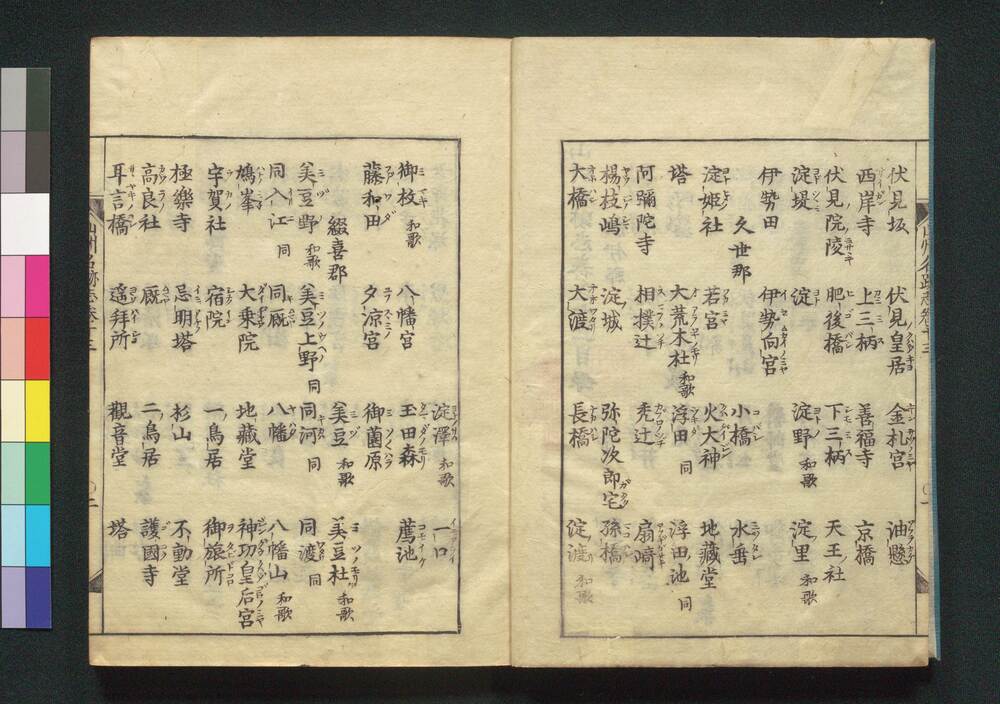 伏見坂 伏見皇居 金札宮 油懸
西岸寺 上三栖 善福寺 京橋
伏見院陵 肥後橋 下三栖 天王社
淀堤 淀 淀野 和歌 淀里 和歌
伊勢田 伊勢向宮
久世郡 小橋 水垂
淀姫社 若宮 火大神 地藏堂
塔 大荒木社 和歌 浮田 同 浮田池 同
阿彌陀寺 相撲辻 禿辻 扇﨑
楊枝嶋 淀城 弥陀次郎宅 孫橋
大橋 大渡 長橋 淀渡 和歌
御牧 和歌 八幡宮 淀澤 和歌 一口
藤和田 夕凉宮 玉田森 薦池
綴喜郡 御薗原
美豆野 和歌 美豆上野 同 美豆 和歌 美豆杜 和歌
同入江 同 同厩 同河 同 同渡 同
鳩峯 大乗院 八幡 八幡山 和歌
宇賀社 宿院 地藏堂 神功皇后宮
極樂寺 忌明塔 一鳥居 御旅所
高良社 厩 杉山 不動堂
耳言橋 遥拜所 二鳥居 護國寺
觀音堂 塔